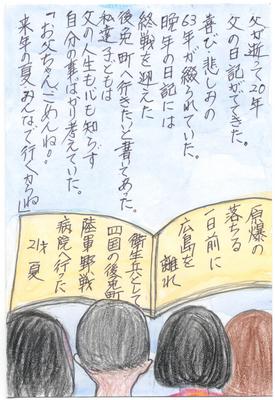 父が逝って20年
父の日記がでてきた。
喜び悲しみの
63年が綴られていた。
晩年の日記には
終戦を迎えた
後免町へ行きたいと書てあった。
私達子どもは
父の人生も心も知らず
自分の事ばかり考えていた。
「お父ちゃんごめんね。
来年の夏みんなで行くからね」
原爆の
落ちる
一日前に
広島を
離れ
衛生兵として
四国の後免町
陸軍野戦
病院へ行った
21才 夏